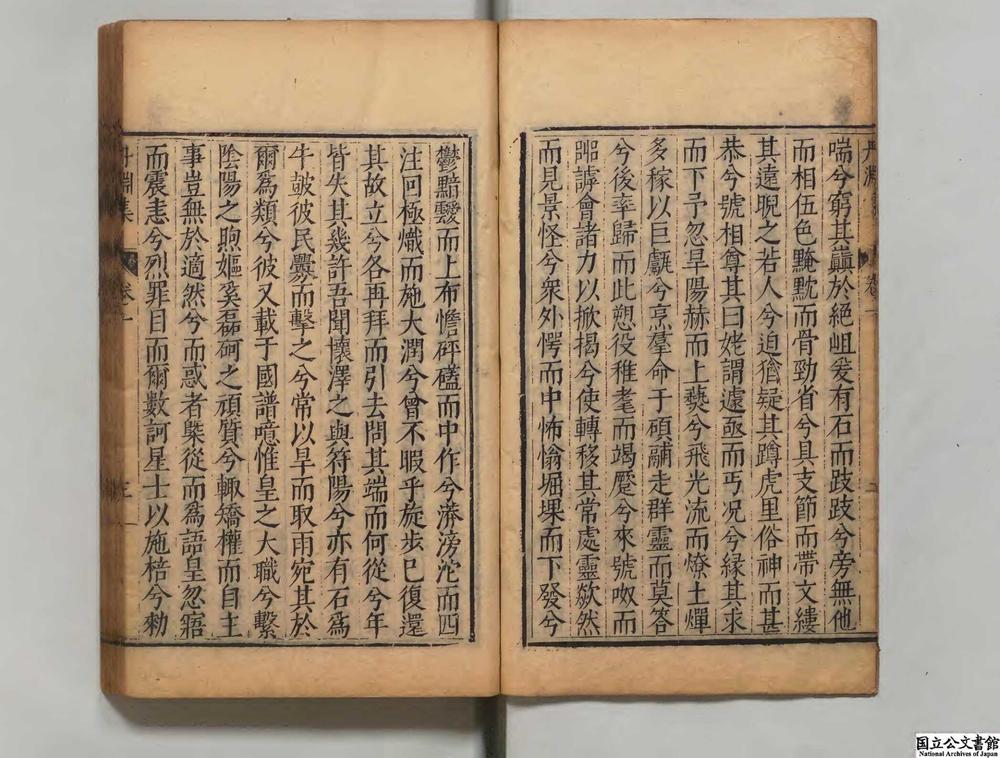 喘兮窮其巔於絕岨爰有石而跂跂兮旁無他
而相伍色黤黕而骨勁省兮具支節而帶文縷
其遠睨之若人兮迫猶疑其蹲虎里俗神而甚
恭兮號相尊其曰姥謂遠亟而丐况兮緣其求
而下予忽旱陽赫而上爇兮飛光流而燎土燀
多稼以巨甗兮烹羣命于碩鬴走群靈而莫答
兮後率歸而此愬役稚耄而竭蹙兮來號呶而
嘂謼會諸力以掀揭兮使轉移其常處靈欻然
而見景怪兮衆外愕而中怖慃堀堁而下發兮
鬱黯靉而上布憺砰礚而中作兮濟滂沱而四
注回極熾而施大潤兮曾不暇乎旋步已復還
其故立兮各再拜而引去問其端而何從兮年
皆失其幾許吾聞懷澤之與符陽兮亦有石爲
牛皷彼民釁而擊之兮常以旱而取雨宛其於
爾爲類兮彼又載于國譜噫惟皇之大職兮繫
陰陽之煦嫗奚磊砢之頑質兮輙矯權而自主
事豈無於適然兮而惑者槩從而爲語皇忽寤
而震恚兮烈罪目而爾數訶星士以施棓兮勑
丹淵集
卷一
三
丹淵
卷
國立公文書館
National Archives of Japan